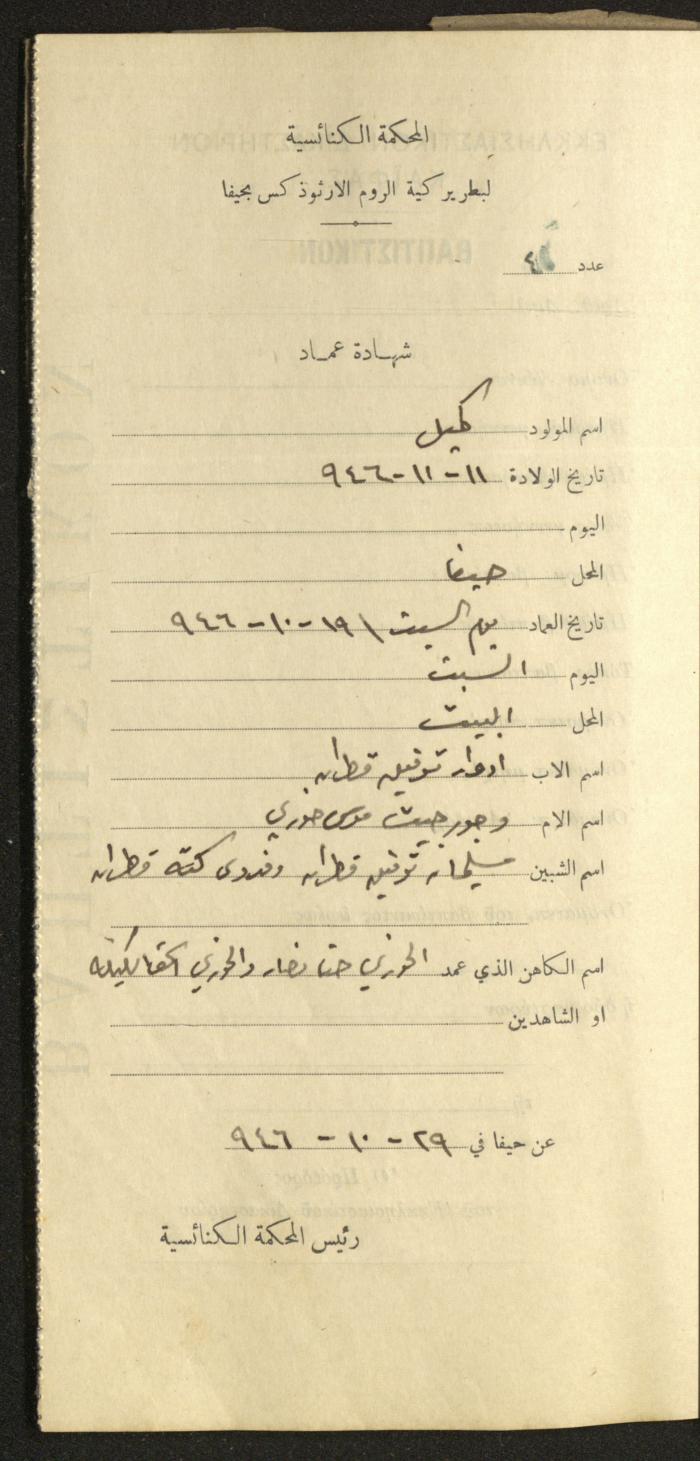 المحكمة الكنائسية
لبطريركية الروم الارثوذكس بحيفا
عدد ٤
شهادة عماد
اسم المولود كميل
تاريخ الولادة ١١-١١-٩٤٦
اليوم
المحل حيفا
تاريخ العماد يوم السبت ١٩\-١٠-٩٤٦
اليوم السبت
المحل البيت
اسم الاب ادوار توفيق قطران
اسم الام وجورجيت موسى خوري
اسم الشبين سليمان توفيق قطران وفدوى كتة قطران
اسم الكاهن الذي عمد الخوري حنا نصار والخوري
او الشاهدين
عن حيفا في ٢٩-١٠-٩٤٦
رئيس المحكمة الكنائسية